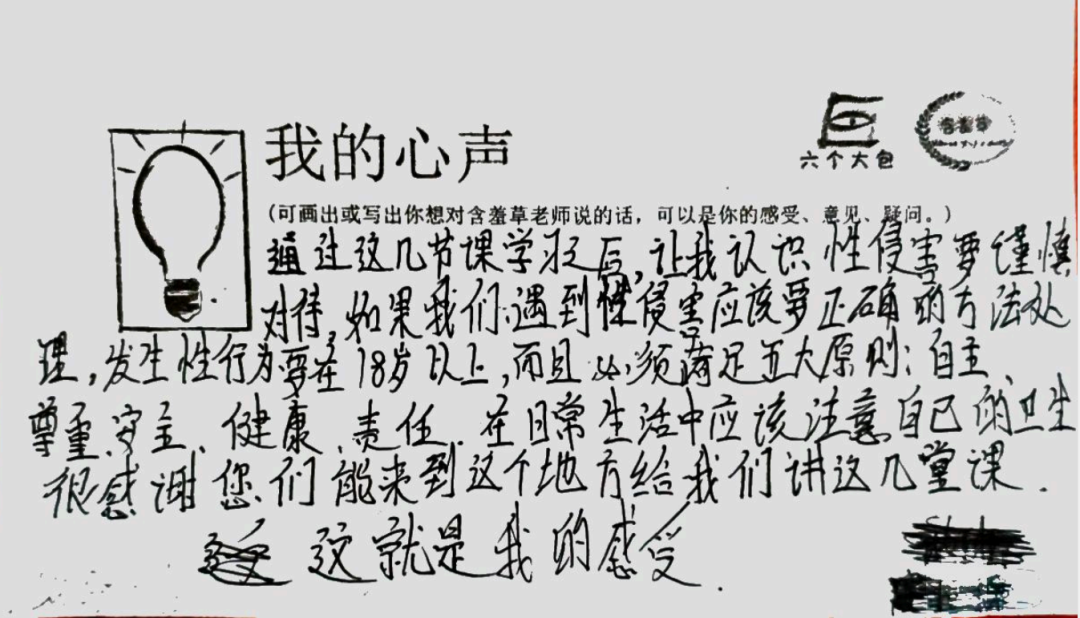 我的心声
六个大包
(可画出或写出你想对含羞草老师说的话，可以是你的感受、意见、疑问。)
通过这几节课学习之后，让我认识性侵害要谨慎
对待，如果我们遇到性侵害应该要正确的方法处
理，发生性行为要在18岁以上，而且必须满足五大原则：自主、
尊重、安全、健康、责任．在日常生活中应该注意自己的卫生
很感谢您们能来到这个地方给我们讲这几堂课．
这就是我的感受．